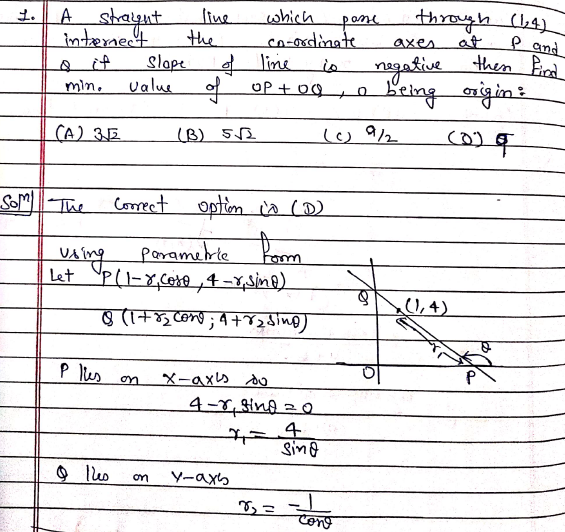 1. A straignt line which pass through (1,4)
intersect the co-ordinate axes at P and
Q if slope of line is negative then find
min. value of OP + OQ, O being origin:
(A) 3√2 (B) 5√2 (C) 9/2 (D) 9
Solⁿ The correct option is (D)
Using parametric form
Let P(1-r₁cosθ, 4-r₁sinθ)
Q (1+r₂cosθ; 4+r₂sinθ)
Q
(1,4)
r₁
θ
O
P
P lies on x-axis so
4-r₁ sinθ = 0
r₁ = 4/sinθ
Q lies on Y-axis
r₂ = -1/cosθ